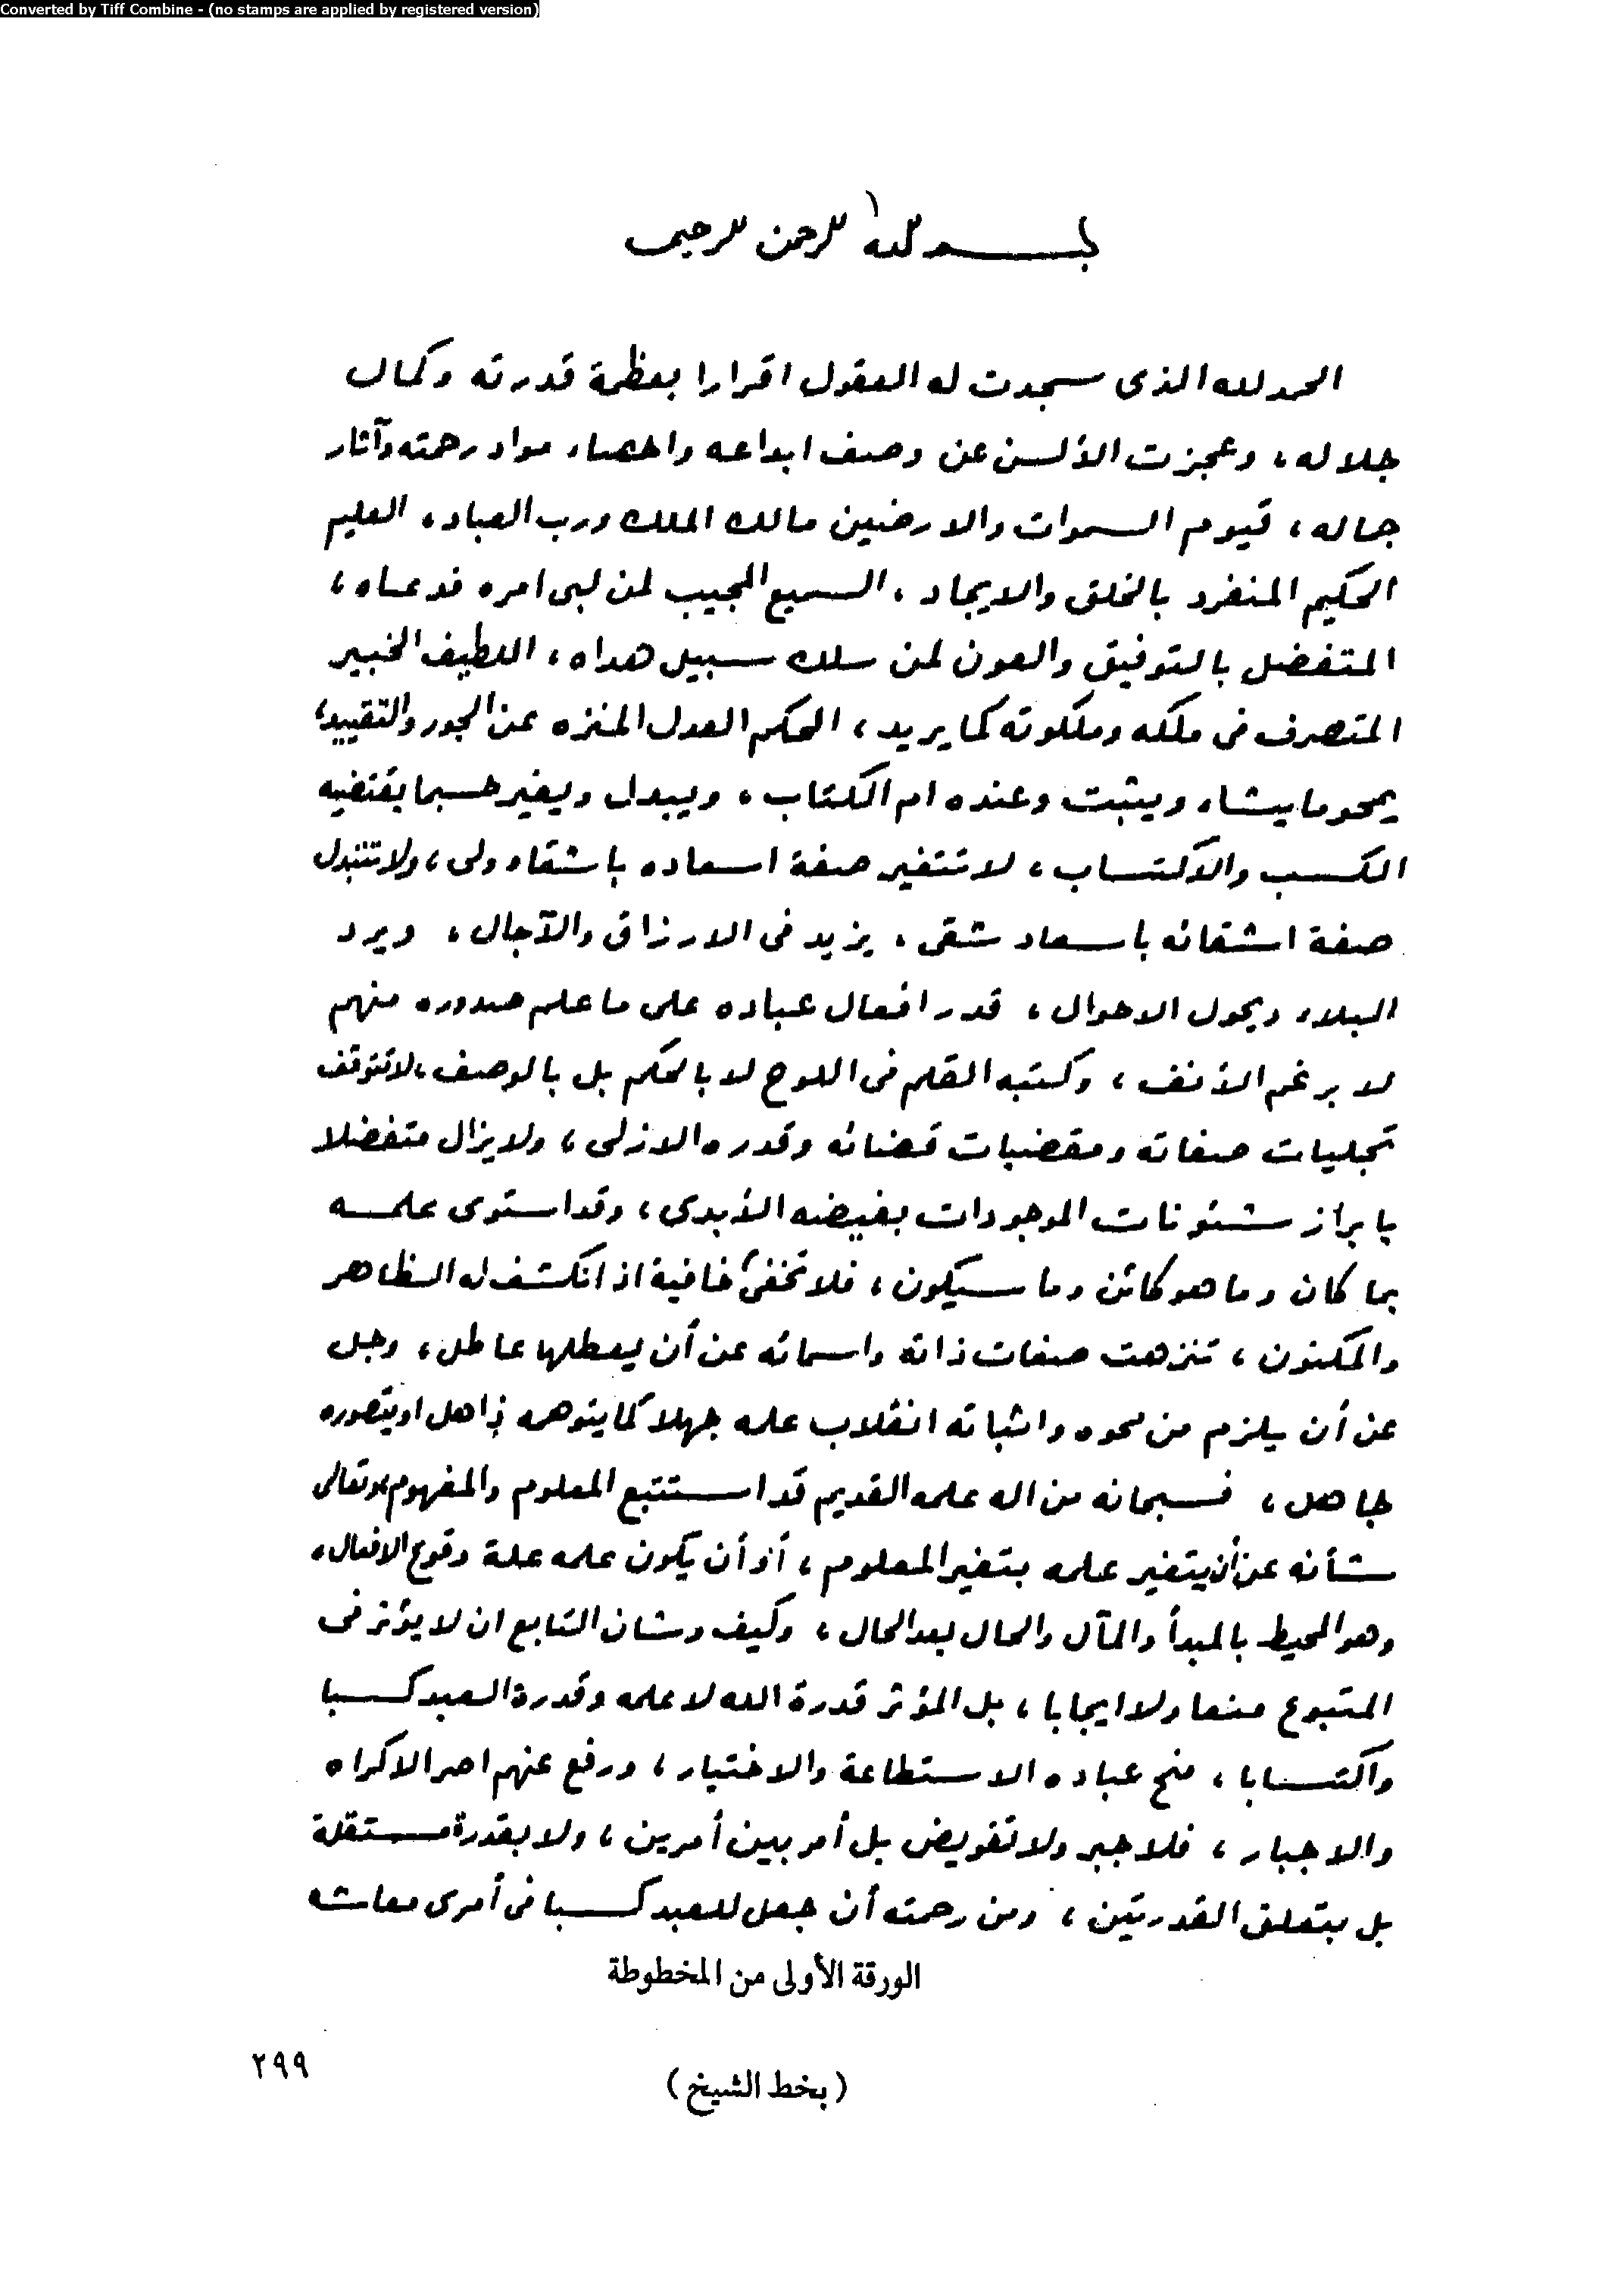 Converted by Tiff Combine - (no stamps are applied by registered version)
بسم الله الرحمن الرحيم
الحمد لله الذى سجدت له العقول اقرارا بعظمة قدرته وكمال
جلاله، وعجزت الألسن عن وصف ابداعه واحصاء مواد رحمته وآثار
جماله، قيوم السموات والارضين مالك الملك ورب العباد، العليم
الحكيم المنفرد بالخلق والايجاد، السميع المجيب لمن لبى امره فدعاه،
المتفضل بالتوفيق والعون لمن سلك سبيل هداه، اللطيف الخبير
المتصرف فى ملكه وملكوته كما يريد، الحكم العدل المنزه عن الجور والتقييد،
يمحو ما يشاء ويثبت وعنده ام الكتاب، ويبدل ويغير حسبما يقتضيه
الكسب والاكتساب، لا تتغير صفة اسعاده باشقاء ولى، ولا تتبدل
صفة اشقائه باسعاد شقى، يزيد فى الارزاق والآجال، ويرد
البلاء ويحول الاحوال، قدر افعال عباده على ما علم صدوره منهم
لا برغم الأنف، وكتبه القلم فى اللوح لا بالحكم بل بالوصف، لا تتوقف
تجليات صفاته ومقضيات قضائه وقدره الازلى، ولا يزال متفضلا
بابراز شئونات الموجودات بفيضه الأبدى، وقد استوى علمه
بما كان وما هو كائن وما سيكون، فلا تخفى خافية اذ انكشف له الظاهر
والمكنون، تنزهت صفات ذاته واسمائه عن أن يعطلها عاطل، وجل
عن أن يلزم من محوه واثباته انقلاب علمه جهلا كما يتوهمه ذاهل او يتصوره
جاهل، فسبحانه من اله علمه القديم قد استتبع المعلوم والمفهوم، وتعالى
شأنه عن أن يتغير علمه بتغير المعلوم، أو أن يكون علمه علة وقوع الافعال،
وهو المحيط بالمبدأ والمآل والحال بعد الحال، وكيف وشان التابع ان لا يؤثر فى
المتبوع منعا ولا ايجابا، بل المؤثر قدرة الله لا علمه وقدرة العبد كسبا
واكتسابا، منح عباده الاستطاعة والاختيار، ورفع عنهم اصر الاكراه
والاجبار، فلا جبر ولا تفويض بل أمر بين أمرين، ولا بقدرة مستقلة
بل بتعلق القدرتين، ومن رحمته أن جعل للعبد كسبا فى أمرى معاشه
الورقة الأولى من المخطوطة
(بخط الشيخ)
٢٩٩